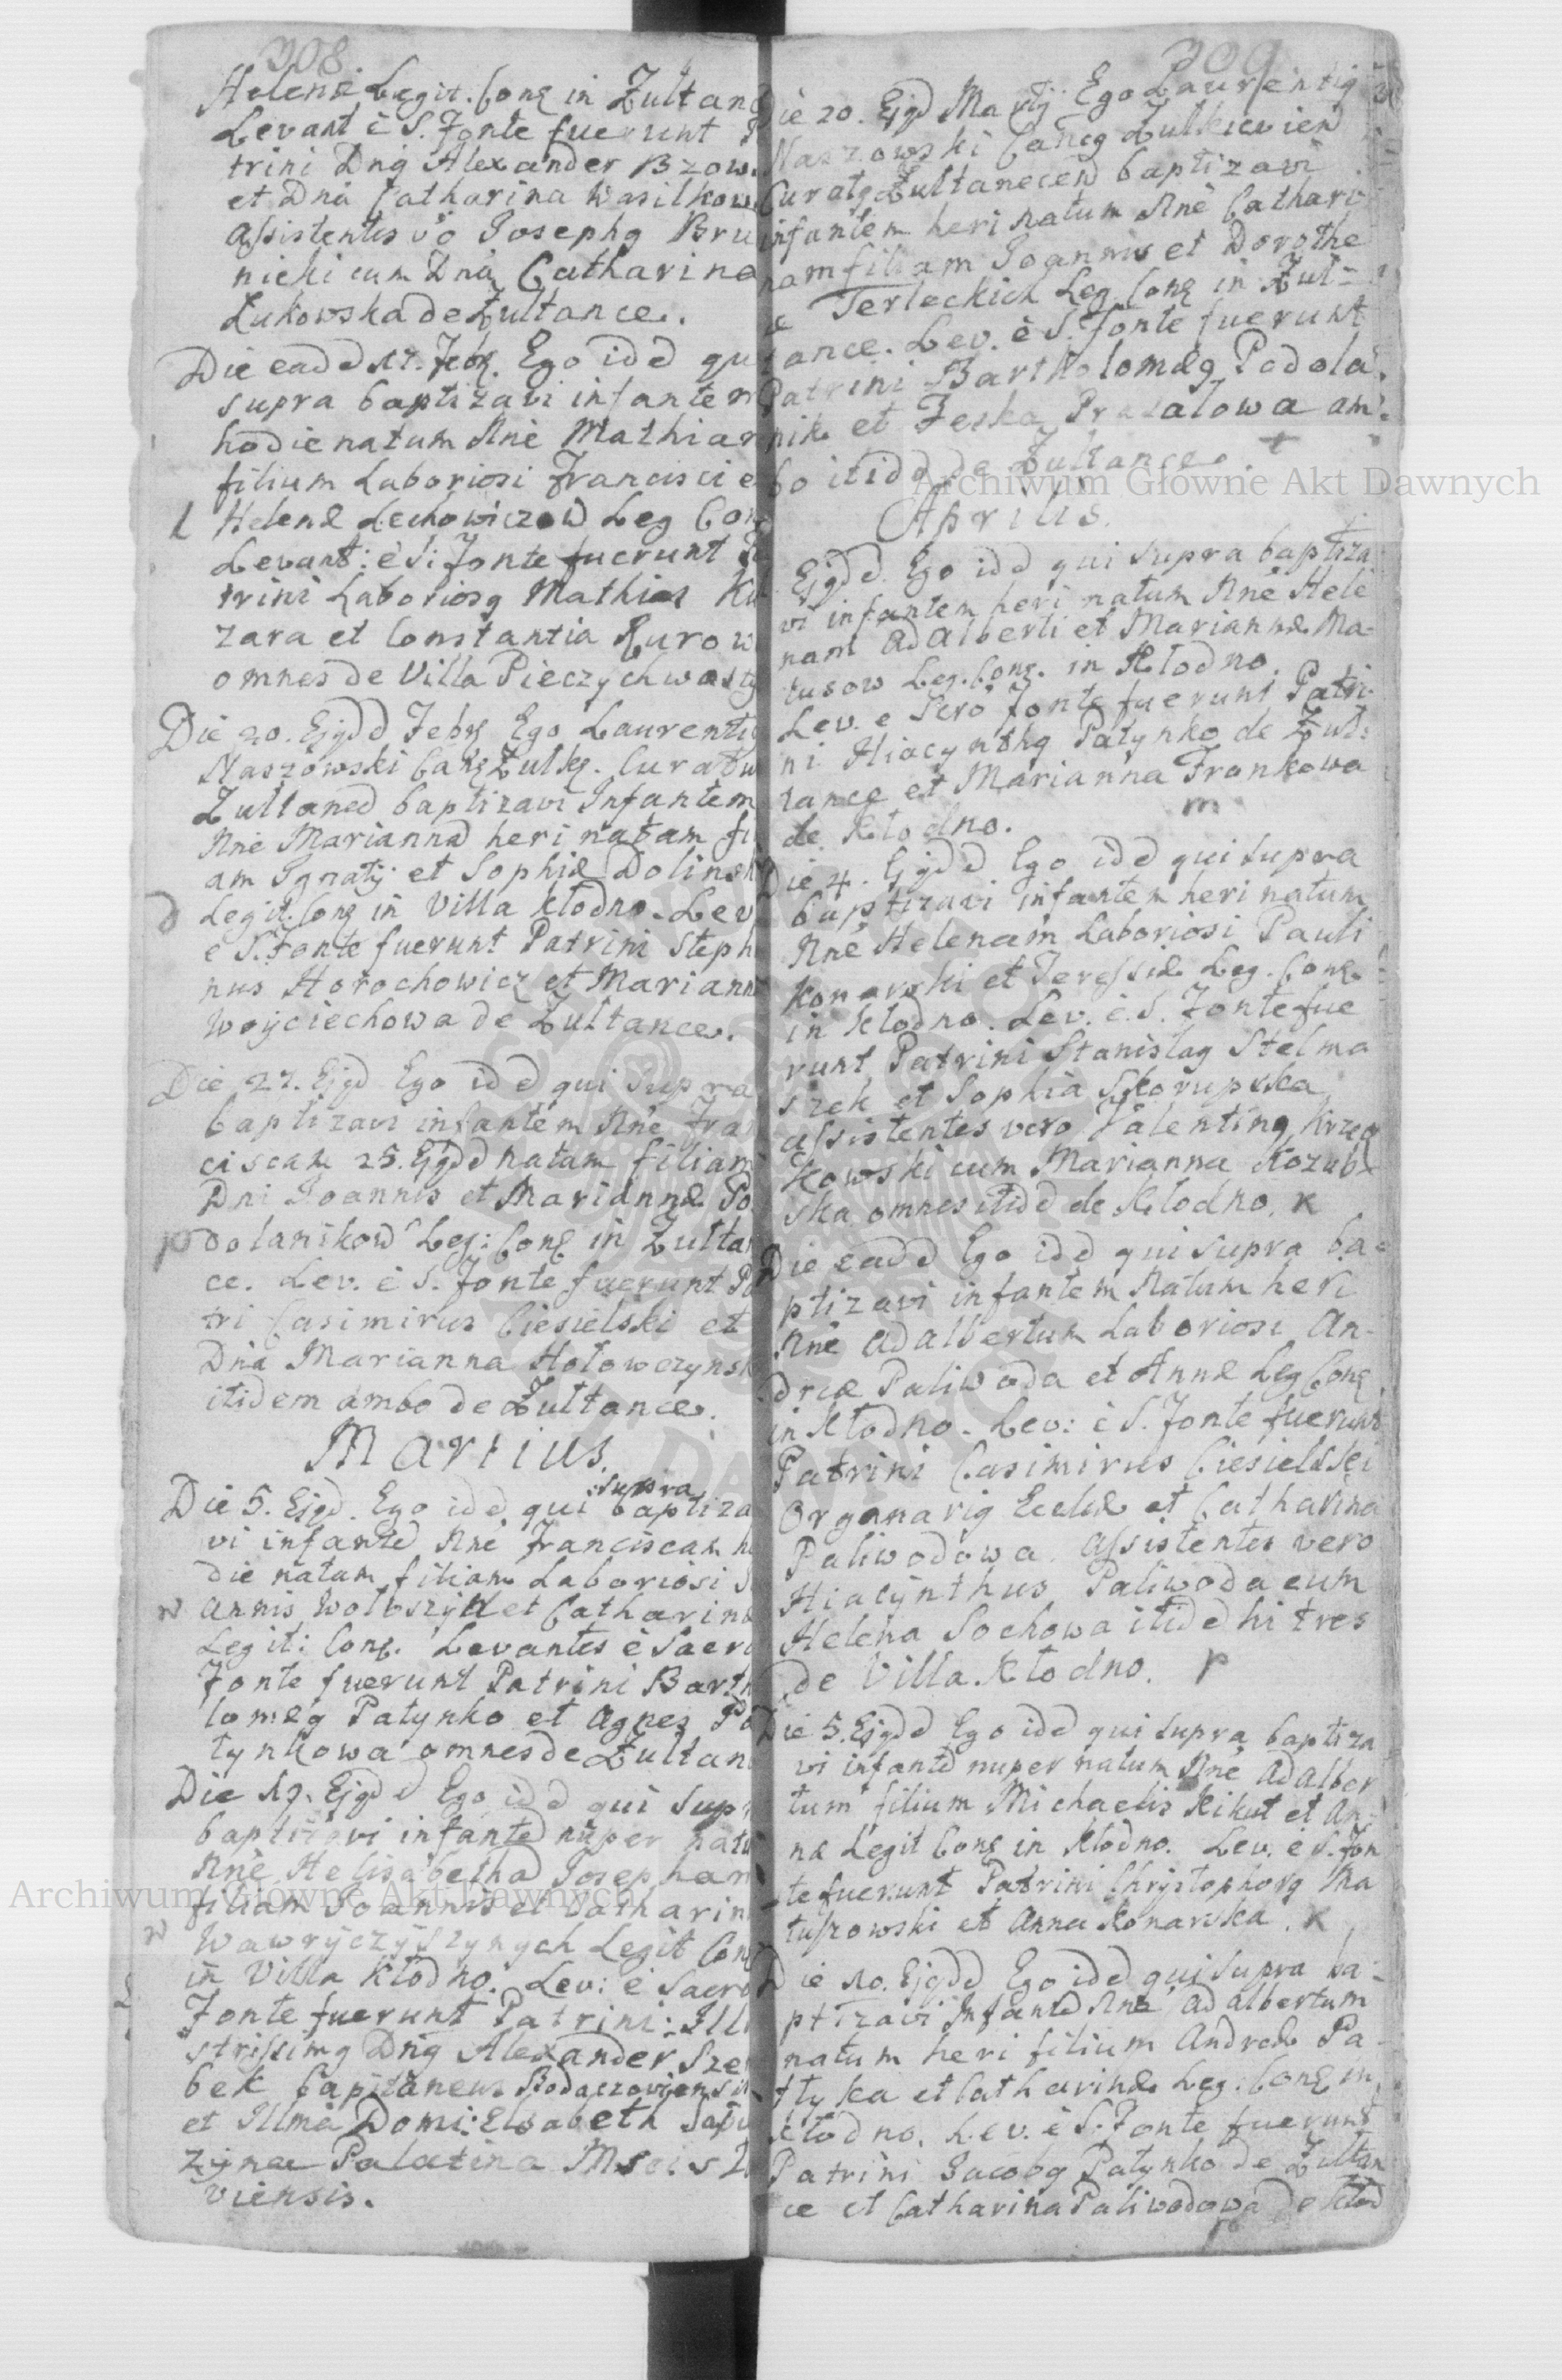 308.
Helenæ Legit. Cong in Żułtanc
Levant è S. Fonte fuerunt
trini Dng Alexander Bzow
et Dna Catharina Wasilkow
assistentes vo Josephg Bru
nicki cum Dna Catharina
Łukowska de Żułtance.
Die eadd 17. Febr. Ego idd qu
supra baptizavi infantem
hodie natum Nne Mathiam
filium Laboriosi Francisci e
l Helenæ Lechowiczow Leg Con
Levant: è S: Fonte fuerunt
trini Laboriosg Mathias Ku
zara et Constantia Kurow
omnes de Villa Pieczychwosty
Die 20. Ejgdd Febr Ego Laurentig
Naszowski Cang Żulkg. Curatu
Żułtaned baptizavi Infantem
Nne Mariannad heri natam fi
am Ignatij et Sophiæ Dolinsk
d Legit. Cong in Villa Kłodno. Lev
e S. Fonte fuerunt Patrini Steph
nus Horochowicz et Mariann
Woyciechowa de Żułtance.
Die 27. Ejgd Ego idd qui supra
baptizavi infantem Nne Fra
ciscam 25. Ejgdd natam filiam
Dni Joannis et Mariannæ Po
p dolanikow Leg: Cong in Żułta
ce. Lev. è S. Fonte fuerunt Pa
tri Casimirus Ciesielski et
Dna Marianna Hołowczynsk
itidem ambo de Żułtance.
Martius.
Die 5. Ejgd. Ego idd qui supra baptiza
vi infantd Nne Franciscam h
die natam filiam Laboriosi
w annis Wołoszyn et Catharinæ
Legit: Cong. Levantes è Sacro
Fonte fuerunt Patrini Barth
lomæg Patynko et Agnes Pa
tynkowa omnes de Żułtan
Die 19. Ejgdd Ego idd qui supr
baptizavi infantd nuper natu
Nne Helisabethad Josepham
filiam Joannis et Catharin
w Wawryczyszynych Legit Cong
in Villa Kłodno. Lev: è Sacro
Fonte fuerunt Patrini: Illu
strissimg Dng Alexander Sze
bek Capitaneus
et Illma Domi: Elsabeth
Palatina
viensis.
309
Die 20. Ejgd Martij Ego Laurentig
Naszowski Cancg Żulkievien
Curatg Żułtanecend baptizavi
infantem heri natum Nne Cathari
nam filiam Joannis et Dorothe
æ Terleckich Leg Cong in Żuł-
tance. Lev. è S. Fonte fuerunt
Patrini Bartholomæg Podola
nik et Feska am
bo itidd de Żułtance. t
Aprilis.
Ejgdd Ego idd qui supra baptiza
vi infantem heri natum Nne Hele
nam Adalberti et Mariannæ Ma-
tusow Leg. Cong. in Kłodno.
Lev. e Scro Fonte fuerunt Patri
ni Hiacynthg Patynko de Żuł:
tance et Marianna Frankowa
de Kłodno. m
Die 4. Ejgdd Ego idd qui supra
baptizavi infantem heri natum
Nne Helenam Laboriosi Pauli
Konarski et Teressiæ Leg. Cong
in Kłodno. Lev. è. S. Fonte fue
runt Patrini Stanislag Stelma
szek et Sophia Skorupska
assistentes vero Valenting Krzeg
kowski cum Marianna Kozub
ska omnes itidd de Kłodno. K
Die eadd Ego idd qui supra ba-
ptizavi infantem natum heri
Nne Adalbertum Laboriosi An-
dreæ Paliwoda et Annæ Leg Cong
in Kłodno. Lev: è S. Fonte fuerunt
Patrini Casimirus Ciesielski
Organarig Ecclæ et Catharina
Paliwodowa. Assistentes vero
Hiacynthus Paliwoda cum
Helena Sochowa itidd hi tres
de Villa Kłodno. P
Die 5. Ejgdd Ego idd qui supra baptiza
vi infantd nuper natum Nne Adalber
tum filium Michaelis Kikut et An-
næ Legit Cong in Kłodno. Lev. e S. Fon
te fuerunt Patrini Chrystophorg Ma
tuszowski et Anna Konarska. K
Die 10. Ejgdd Ego idd qui supra ba-
ptizavi Infantd Nne Adalbertum
natum heri filium Andreæ Pa-
tyka et Catharinæ Leg: Cong in
Kłodno. Lev. è S. Fonte fuerunt
Patrini Jacobg Patynko de Żułtan
ce et Catharina Paliwodowa de Kłod
P
Archiwum Główne Akt Dawnych
Archiwum Główne Akt Dawnych